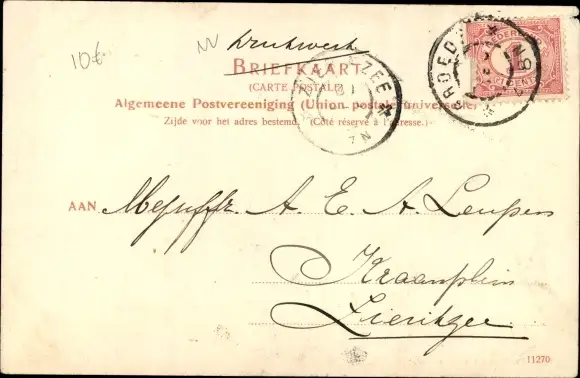 10€
drukwerk
BRIEFKAART
(CARTE POSTALE)
Algemeene Postvereeniging (Union postale universelle)
Zijde voor het adres bestemd. (Côté réservé à l'adresse.)
AAN Mejuffr. A. E. A. Leupen
Kraanplein
Zierikzee
11270